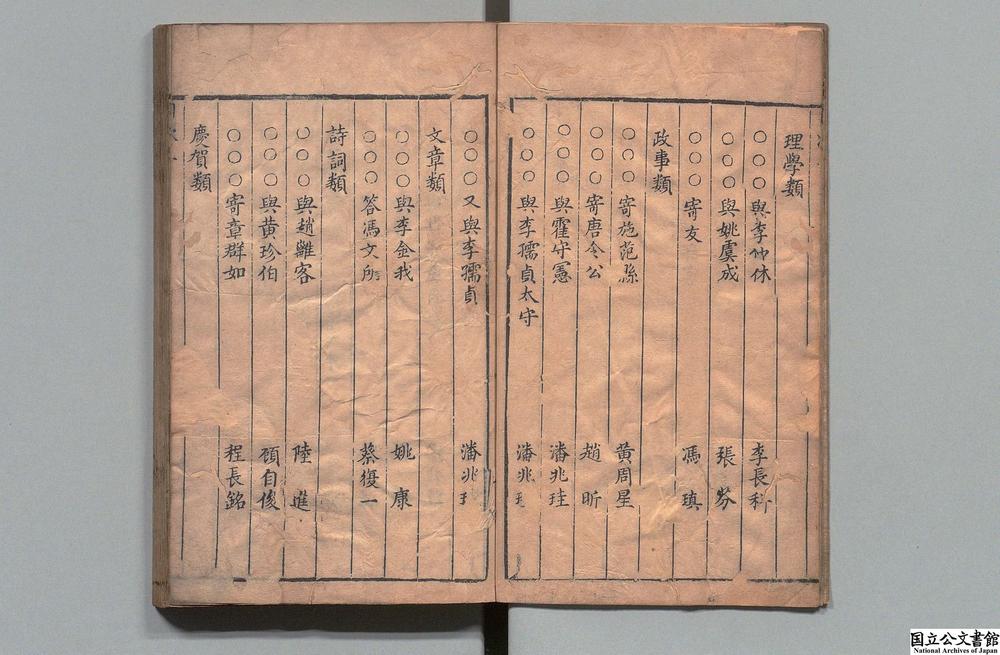 理學類
○○○與李仲休 李長科
○○○與姚虞成 張芬
○○○寄友 馮瑱
政事類
○○寄施范縣 黃周星
○○○寄唐令公 趙昕
○○○與霍守憲 潘兆珪
○○○與李孺貞太守 潘兆
○○○又與李孺貞 潘兆
文章類
○○○與李金我 姚康
○○○答馮文所 蔡復一
詩詞類
○○○與趙雝客 陸進
○○○與黃珍伯 顧自俊
○○○寄章群如 程長銘
慶賀類
国立公文書館
National Archives of Japan